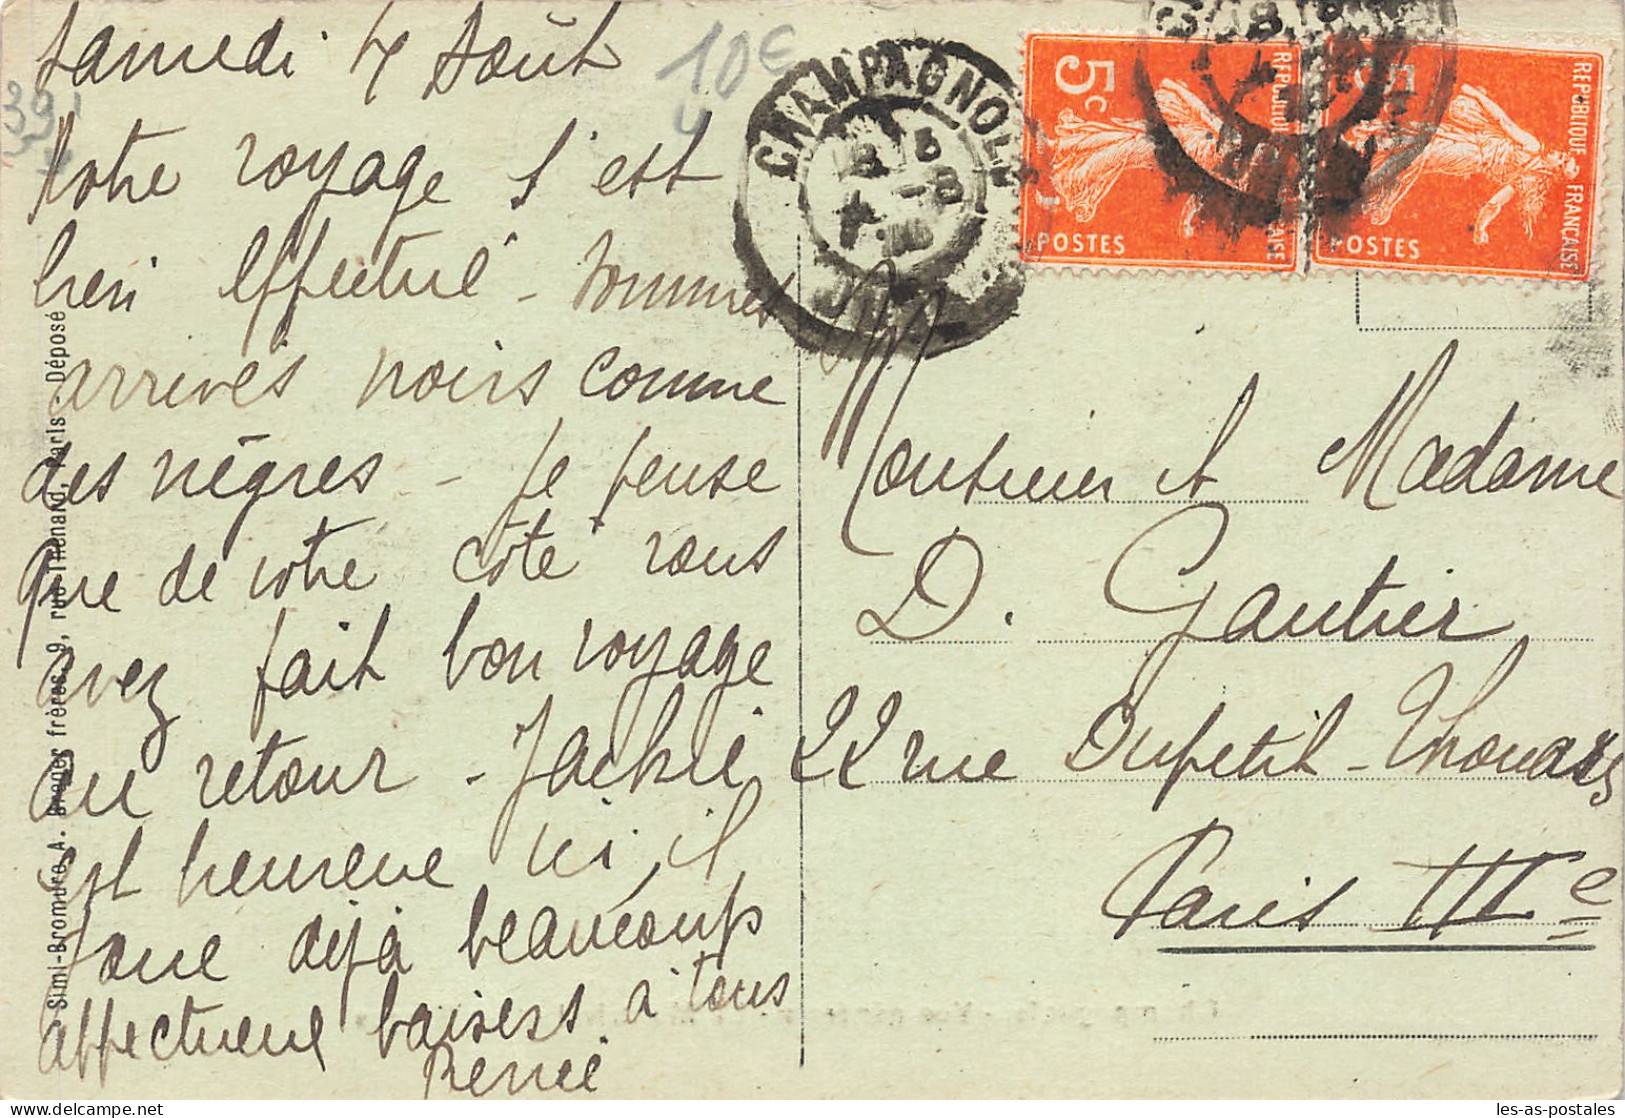 Samedi 7 Août
Notre voyage s'est
bien effectué - sommes
arrivés noirs comme
des nègres - je pense
que de votre côté vous
avez fait bon voyage
au retour - Jackie
est heureux ici, il
joue déjà beaucoup
affectueux baisers à tous
Renée
10€
CHAMPAGNOLE
JURA
5c
REPUBLIQUE FRANÇAISE
POSTES
REPUBLIQUE FRANÇAISE
POSTES
Monsieur et Madame
D. Gautier
22 rue Dupetit-Thouars
Paris IIIe
Simi-Bromure A. Breger frères, 9, rue Thénard, Paris - Déposé
les-as-postales.com